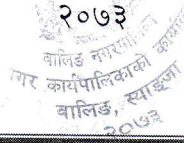 २०७३
वालिङ नगरपा
नगर कार्यपालिकाको कार्या
वालिङ, स्याङ्जा
२०७३